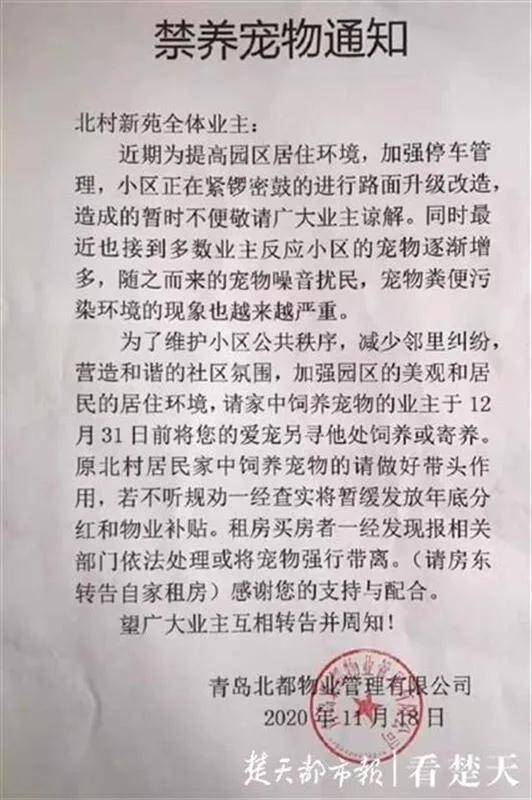 禁养宠物通知
北村新苑全体业主：
近期为提高园区居住环境，加强停车管
理，小区正在紧锣密鼓的进行路面升级改造，
造成的暂时不便敬请广大业主谅解。同时最
近也接到多数业主反应小区的宠物逐渐增
多，随之而来的宠物噪音扰民，宠物粪便污
染环境的现象也越来越严重。
为了维护小区公共秩序，减少邻里纠纷，
营造和谐的社区氛围，加强园区的美观和居
民的居住环境，请家中饲养宠物的业主于 12
月 31 日前将您的爱宠另寻他处饲养或寄养。
原北村居民家中饲养宠物的请做好带头作
用，若不听规劝一经查实将暂缓发放年底分
红和物业补贴。租房买房者一经发现报相关
部门依法处理或将宠物强行带离。（请房东
转告自家租房）感谢您的支持与配合。
望广大业主互相转告并周知！
青岛北都物业管理有限公司
2020 年 11 月 18 日
楚天都市报 看楚天